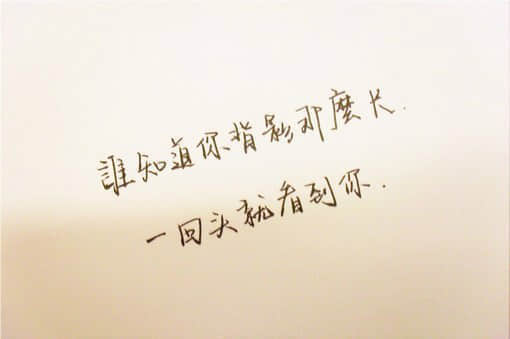 誰知道你背影那麼长.
一回头就看到你.